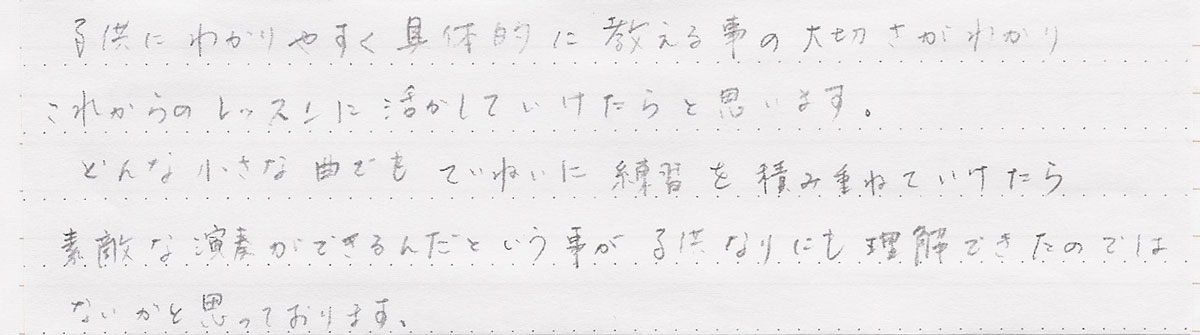 子供にわかりやすく具体的に教える事の大切さがわかり
これからのレッスンに活かしていけたらと思います。
どんな小さな曲でもていねいに練習を積み重ねていけたら
素敵な演奏ができるんだという事が子供なりにも理解できたのでは
ないかと思っております。